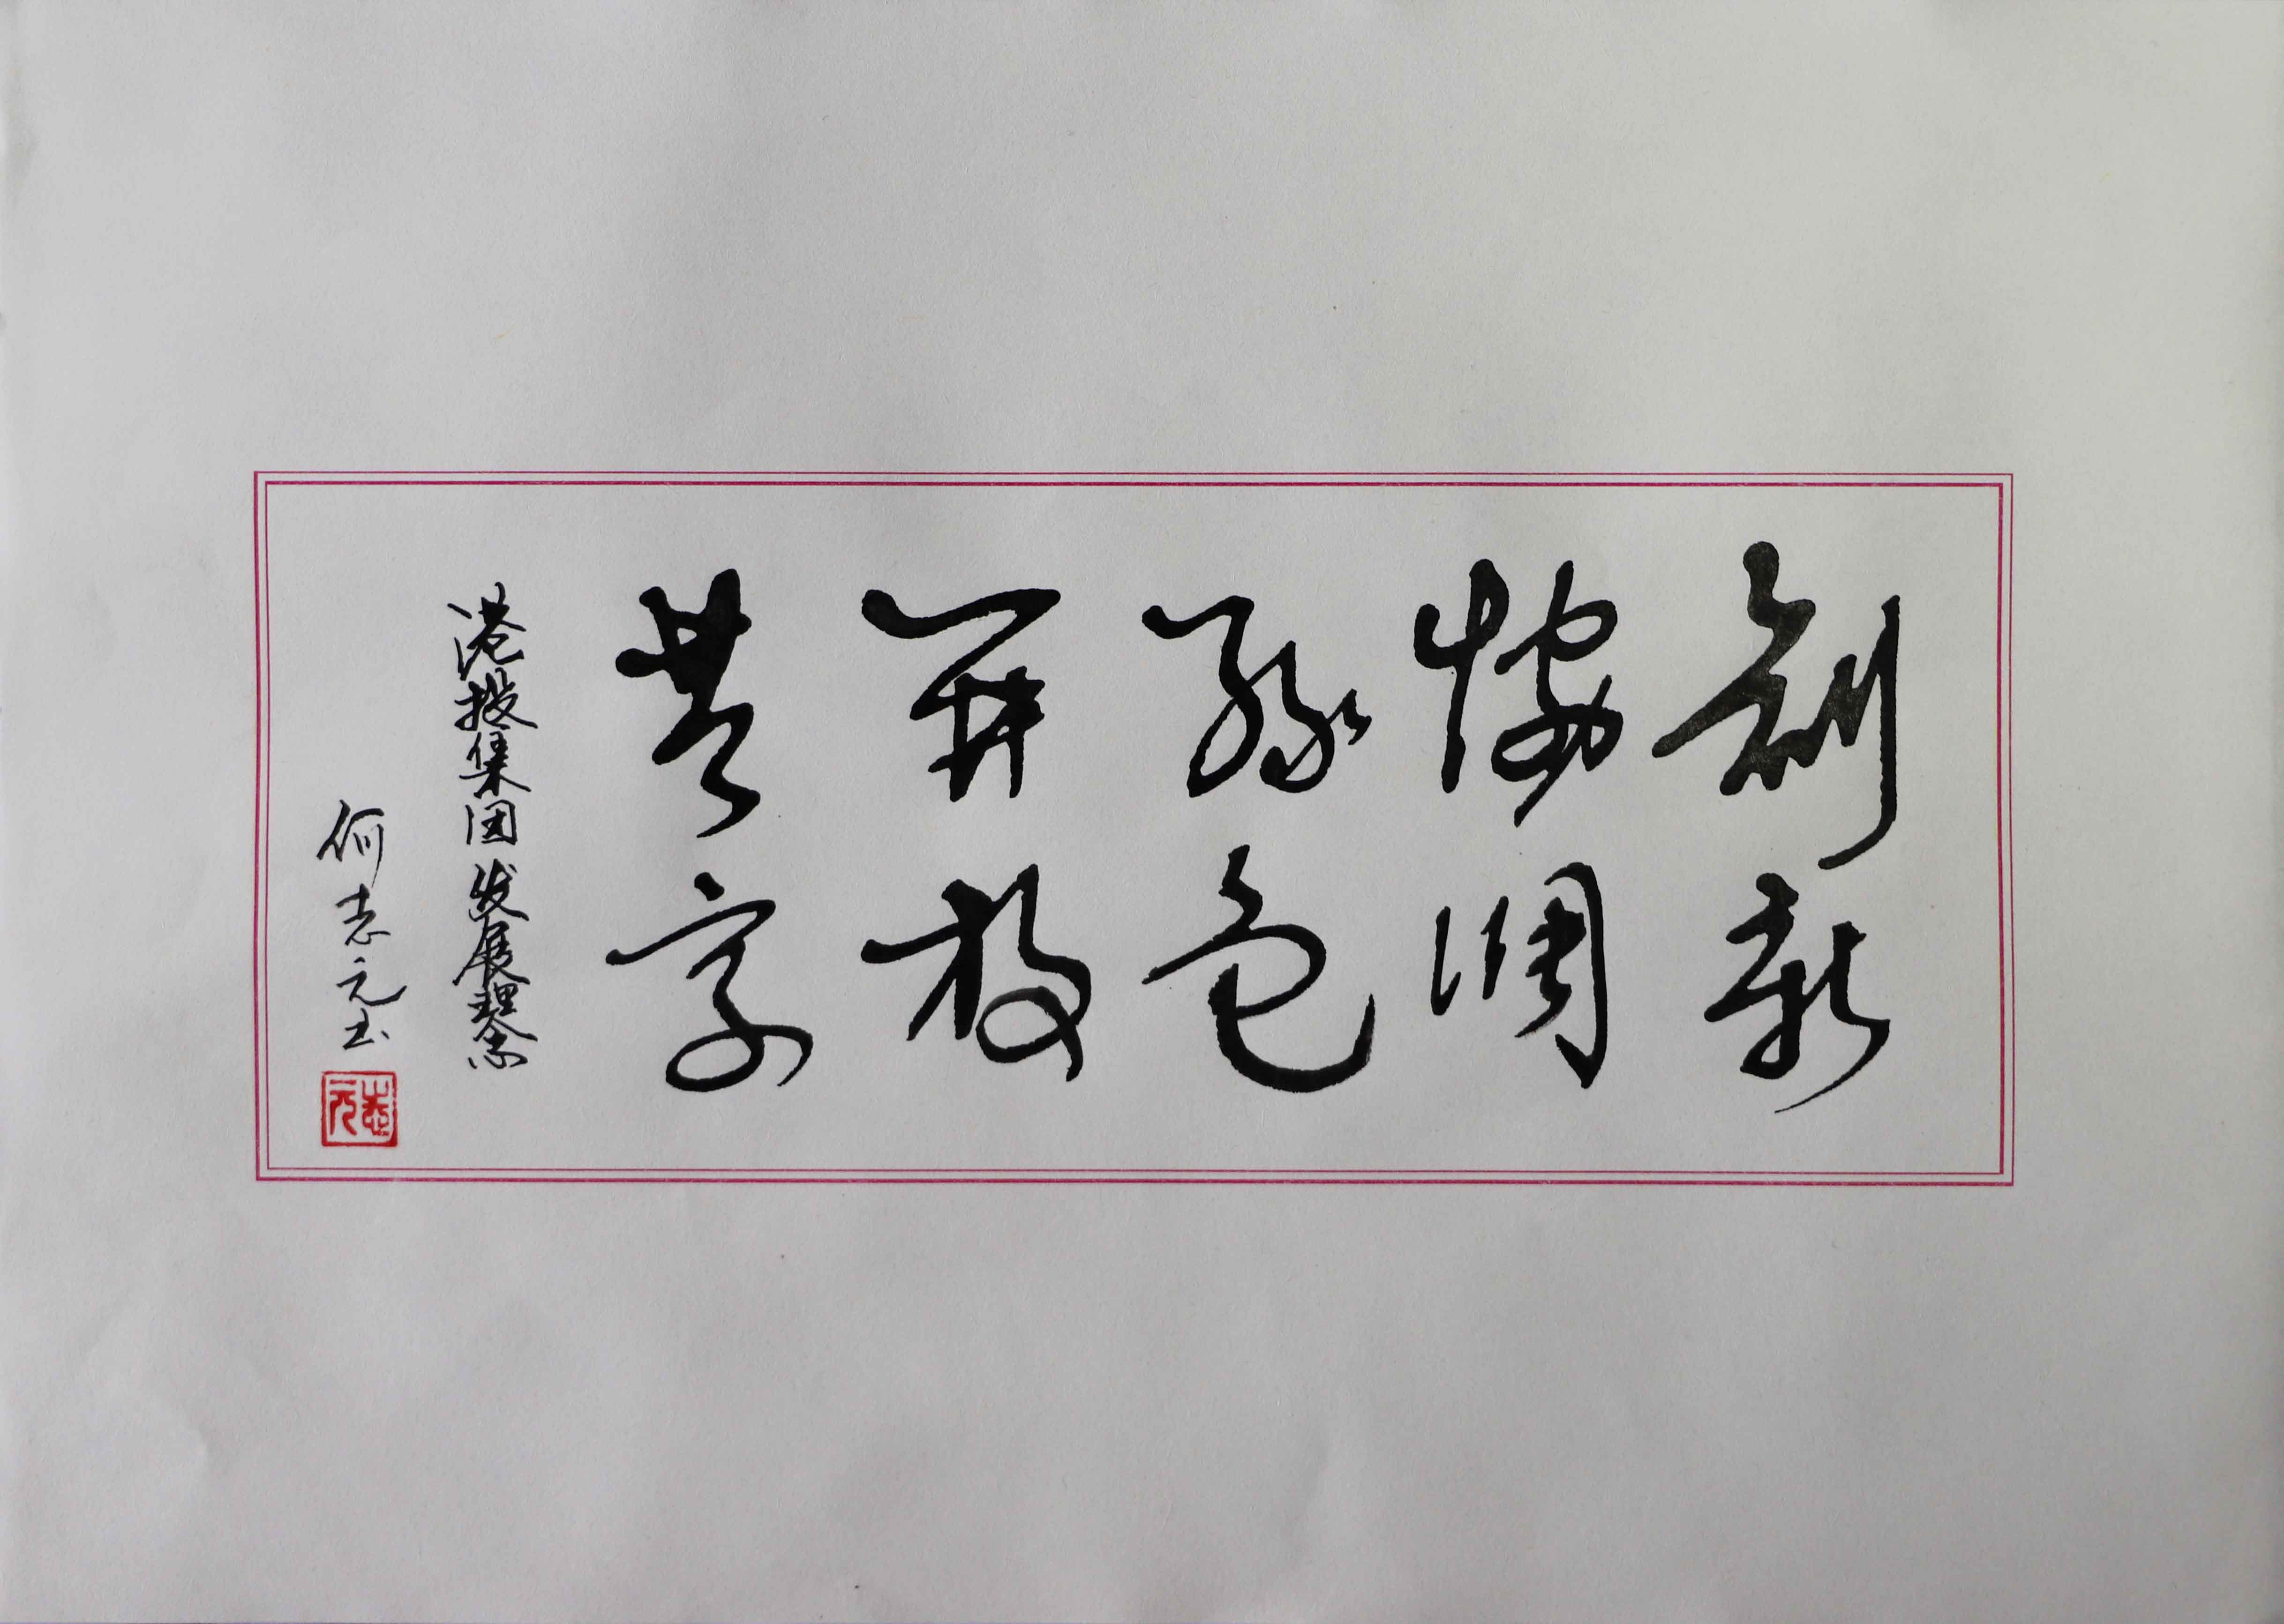 创新
协调
绿色
开放
共享
港投集团发展理念
何志元书
志元